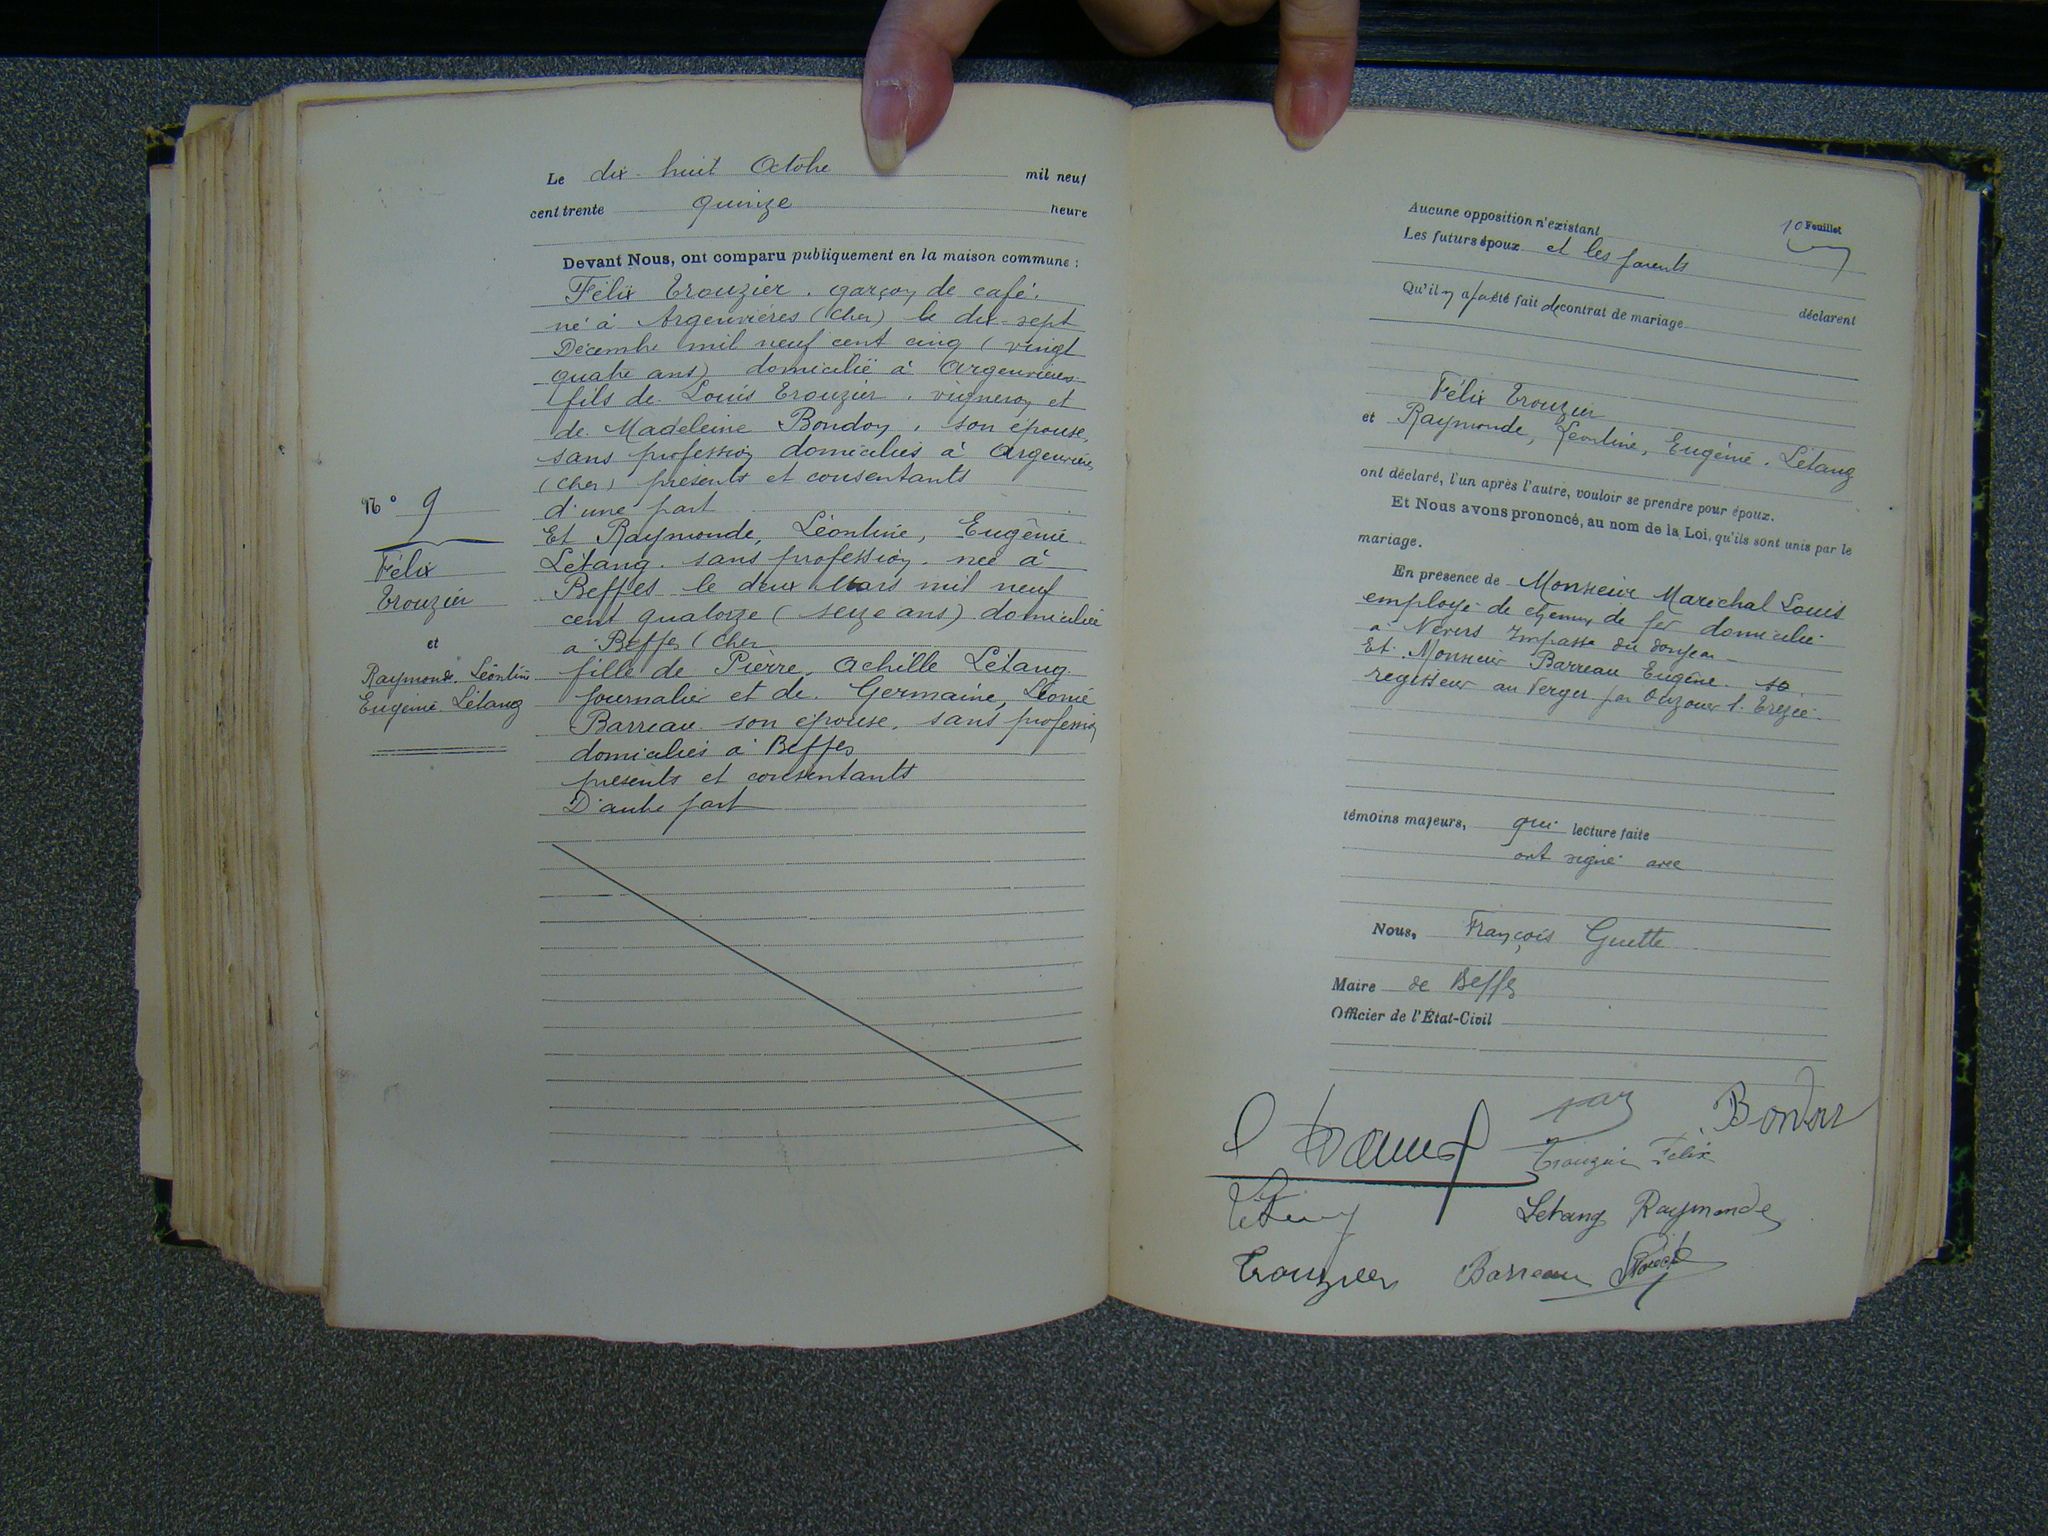 Le dix-huit Octobre mil neuf
cent trente quinze heure
Devant Nous, ont comparu publiquement en la maison commune :
Félix Trouzier. garçon de café.
né à Argenvières (Cher) le dix-sept
Décembre mil neuf cent cinq (vingt
quatre ans) domicilié à Argenvières
fils de Louis Trouzier, vigneron et
de Madeleine Bondon, son épouse,
sans profession domiciliés à Argenvières
(Cher) présents et consentants
d'une part
Et Raymonde, Léontine, Eugénie
Létang. sans profession. née à
Beffes le deux Mars mil neuf
cent quatorze (seize ans) domiciliée
à Beffes (Cher
fille de Pierre, Achille Létang
journalier et de Germaine, Léonie
Barreau son épouse, sans profession
domiciliés à Beffes
présents et consentants
D'autre part
N° 9
Félix
Trouzier
et
Raymonde Léontine
Eugénie Létang
10 Feuillet
Aucune opposition n'existant
Les futurs époux et les parents
déclarent
Qu'il n'y a pas été fait de contrat de mariage
Félix Trouzier
et Raymonde, Léontine, Eugénie. Létang
ont déclaré, l'un après l'autre, vouloir se prendre pour époux.
Et Nous avons prononcé, au nom de la Loi, qu'ils sont unis par le
mariage.
En présence de Monsieur Maréchal Louis
employé de chemin de fer domicilié
à Nevers Impasse du donjon
Et Monsieur Barreau Eugène
régisseur au Verger par Ouzouer s. Trézée.
témoins majeurs, qui lecture faite
ont signé avec
Nous, François Guette
Maire de Beffes
Officier de l'État-Civil
Bondon
Trouzier Félix
Létang Raymonde
Trouzier Barreau